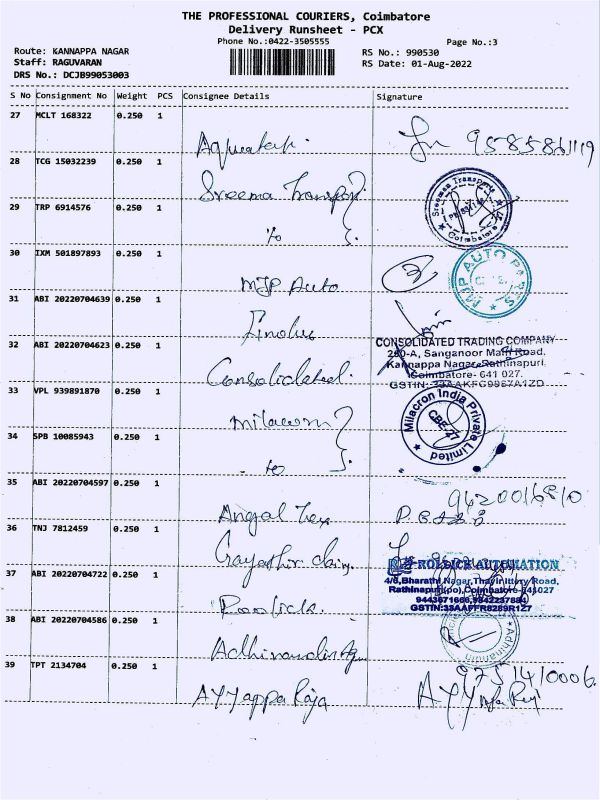 THE PROFESSIONAL COURIERS, Coimbatore
Delivery Runsheet - PCX
Phone No.:0422-3505555
Page No.:3
Route: KANNAPPA NAGAR
RS No.: 990530
Staff: RAGUVARAN
RS Date: 01-Aug-2022
DRS No.: DCJB99053003
S No Consignment No Weight PCS Consignee Details Signature
27 MCLT 168322 0.250 1
28 TCG 15032239 0.250 1
Sreema Transport
Sreemaa Transports
Coimbatore
29 TRP 6914576 0.250 1
30 IXM 501897893 0.250 1
MJP Auto
MJP AUTO PARTS
31 ABI 20220704639 0.250 1
32 ABI 20220704623 0.250 1
Consolidated.
CONSOLIDATED TRADING COMPANY
Sanganoor Main Road,
Kannappa Nagar, Rathinapuri,
Coimbatore- 641 027.
33 VPL 939891870 0.250 1
Milacron India Private Limited
CBE-27
34 SPB 10085943 0.250 1
35 ABI 20220704597 0.250 1
Angal Tex
36 TNJ 7812459 0.250 1
37 ABI 20220704722 0.250 1
ROLLICK AUTOMATION
Rathinapuri(po),Coimbatore-641027
38 ABI 20220704586 0.250 1
39 TPT 2134704 0.250 1
9751410006.
AYYappa Raja